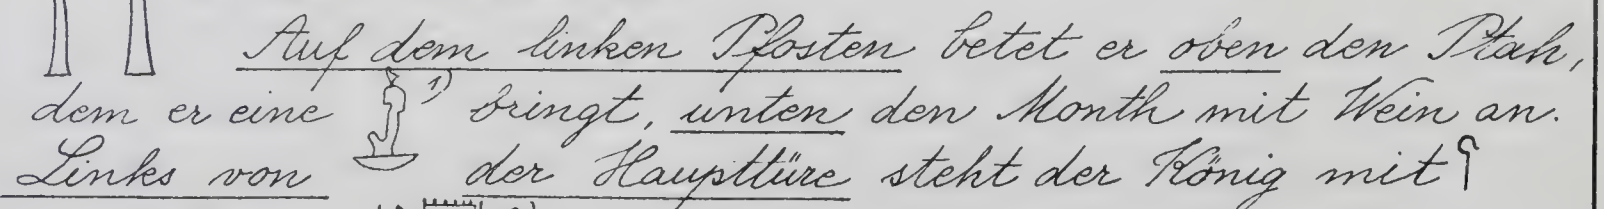 Auf dem linken Pfosten betet er oben den Ptah,
dem er eine 1) bringt, unten den Month mit Wein an.
Links von der Haupttüre steht der König mit